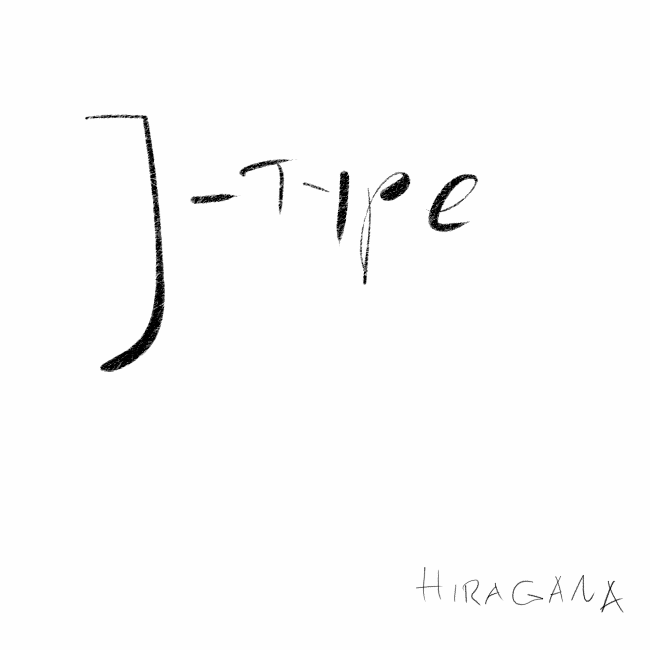 J-Type
HIRAGANA